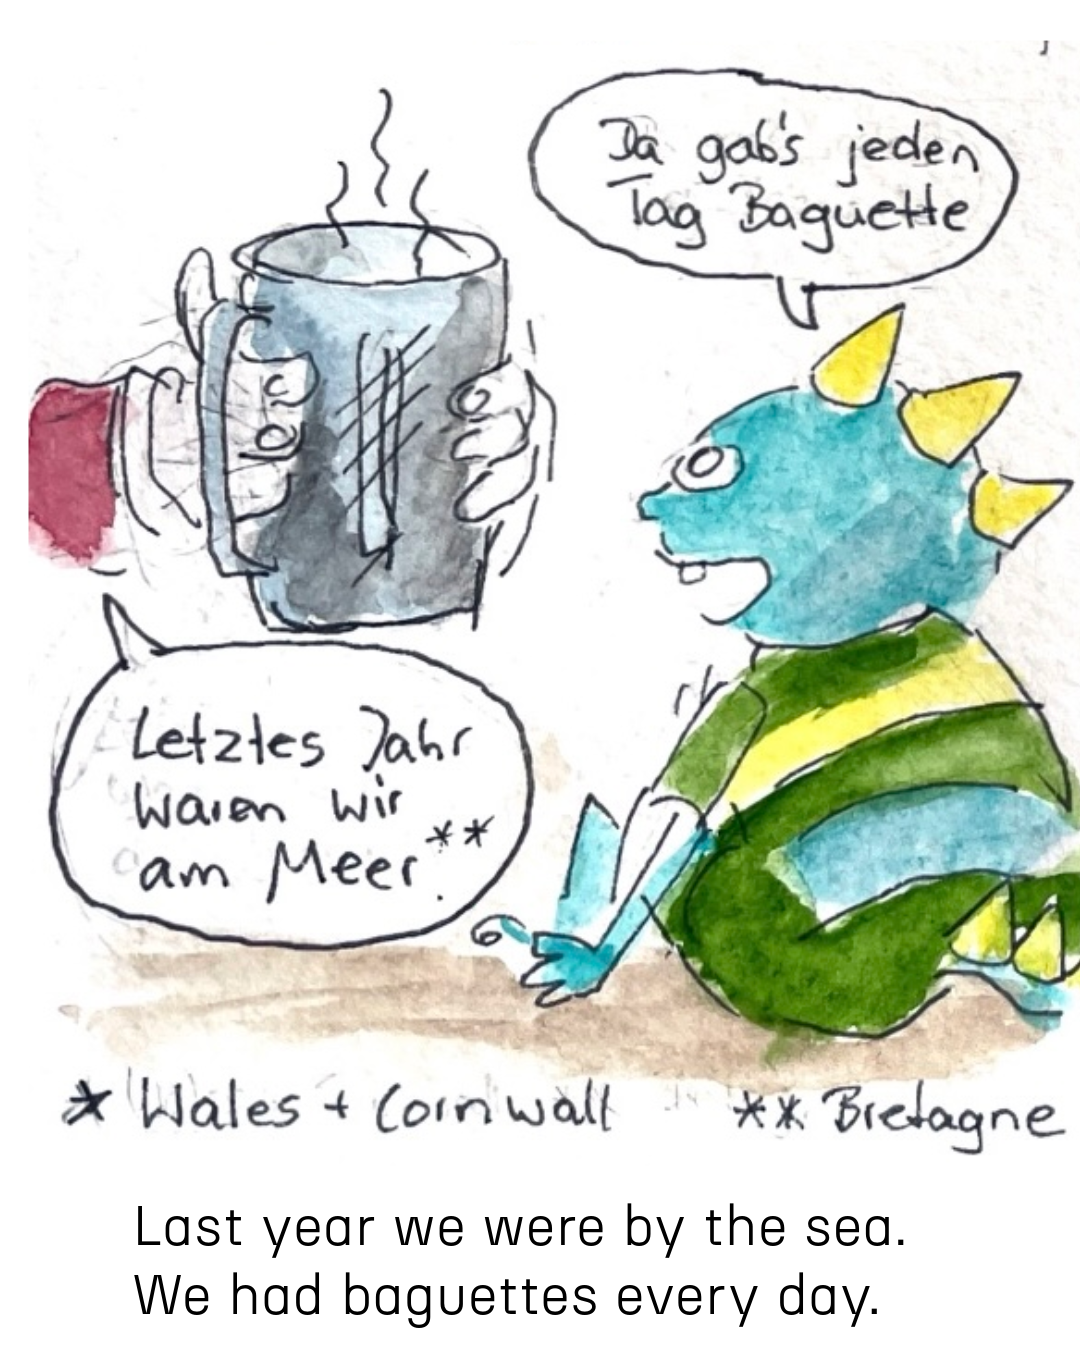 Da gab's jeden
Tag Baguette
Letztes Jahr
waren wir
am Meer.**
* Wales + Cornwall
** Bretagne
Last year we were by the sea.
We had baguettes every day.